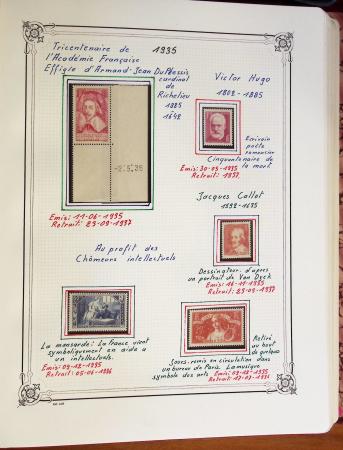 Tricentenaire de
l'Académie Française
Effigie d'Armand-Jean DuPlessis
cardinal
de
Richelieu
1585
1642
1935
Victor Hugo
1802-1885
-2.5.35
Ecrivain
poète
romancier
Cinquantenaire de
la mort.
Emis: 30-05-1935
Retrait: 1937
Emis: 11-06-1935
Retrait: 29-09-1937
Jacques Callot
1592-1635
Au profit des
Chômeurs intellectuels
Dessinateur d'apres
un portrait de Van Dyck
Emis: 16-11-1935
Retrait: 29-09-1937
La mansarde: la france vient
symboliquement en aide a
un intellectuels.
Emis: 09-12-1935
Retrait: 05-06-1936
Retiré
au bout
de quelques
Jours. remis en circulation dans
un bureau de Paris La musique
symbole des arts Emis: 09-12-1935